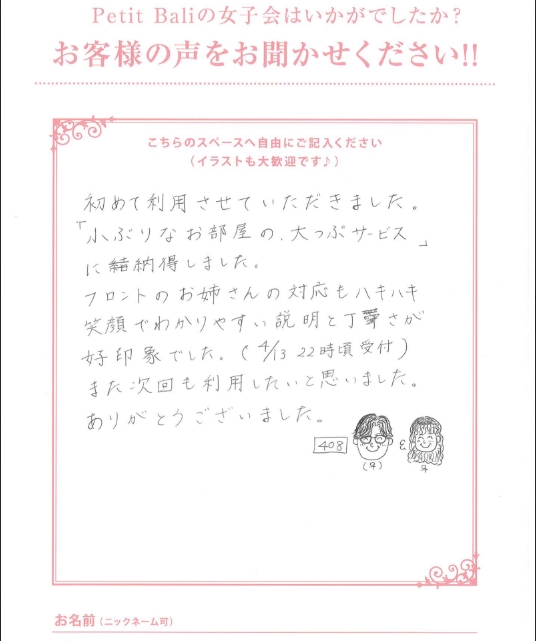 Petit Baliの女子会はいかがでしたか?
お客様の声をお聞かせください!!
こちらのスペースへ自由にご記入ください
(イラストも大歓迎です♪)
初めて利用させていただきました。
「小ぶりなお部屋の、大つぶサービス」
に納得しました。
フロントのお姉さんの対応もハキハキ
笑顔でわかりやすい説明と丁寧さが
好印象でした。(4/13 22時頃受付)
また次回も利用したいと思いました。
ありがとうございました。
408
&
(♀)
♀
お名前(ニックネーム可)